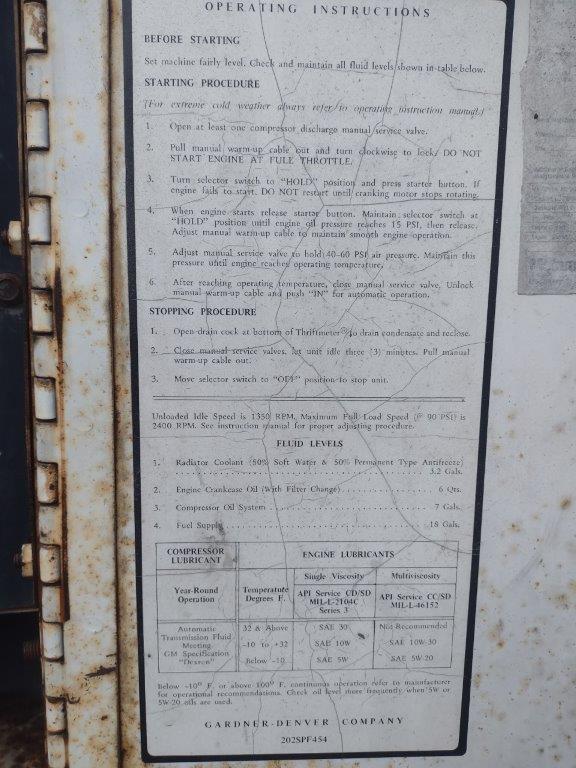 OPERATING INSTRUCTIONS
BEFORE STARTING
Set machine fairly level. Check and maintain all fluid levels shown in table below.
STARTING PROCEDURE
[For extreme cold weather always refer to operating instruction manual.]
1. Open at least one compressor discharge manual service valve.
2. Pull manual warm-up cable out and turn clockwise to lock. DO NOT
START ENGINE AT FULL THROTTLE.
3. Turn selector switch to "HOLD" position and press starter button. If
engine fails to start, DO NOT restart until cranking motor stops rotating.
4. When engine starts release starter button. Maintain selector switch at
"HOLD" position until engine oil pressure reaches 15 PSI, then release.
Adjust manual warm-up cable to maintain smooth engine operation.
5. Adjust manual service valve to hold 40-60 PSI air pressure. Maintain this
pressure until engine reaches operating temperature.
6. After reaching operating temperature, close manual service valve. Unlock
manual warm-up cable and push "IN" for automatic operation.
STOPPING PROCEDURE
1. Open drain cock at bottom of Thriftmeter® to drain condensate and reclose.
2. Close manual service valves, let unit idle three (3) minutes. Pull manual
warm-up cable out.
3. Move selector switch to "OFF" position to stop unit.
Unloaded Idle Speed is 1350 RPM, Maximum Full Load Speed @ 90 PSI is
2400 RPM. See instruction manual for proper adjusting procedure.
FLUID LEVELS
1. Radiator Coolant (50% Soft Water & 50% Permanent Type Antifreeze)
3.2 Gals.
2. Engine Crankcase Oil (With Filter Change) 6 Qts.
3. Compressor Oil System 7 Gals.
4. Fuel Supply 18 Gals.
COMPRESSOR LUBRICANT ENGINE LUBRICANTS
Single Viscosity Multiviscosity
Year-Round Operation Temperature Degrees F. API Service CD/SD MIL-L-2104C Series 3 API Service CC/SD MIL-L-46152
Automatic Transmission Fluid Meeting GM Specification "Dexron"
32 & Above SAE 30 Not Recommended
-10 to +32 SAE 10W SAE 10W-30
Below -10 SAE 5W SAE 5W-20
Below -10° F. or above 100° F. continuous operation refer to manufacturer
for operational recommendations. Check oil level more frequently when 5W or
5W-20 oils are used.
GARDNER-DENVER COMPANY
202SPF454